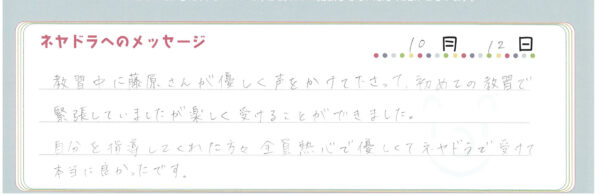 ネヤドラへのメッセージ
10月 12日
教習中に藤原さんが優しく声をかけて下さって、初めての教習で
緊張していましたが楽しく受けることができました。
自分を指導してくれた方々全員熱心で優しくてネヤドラで受けて
本当に良かったです。